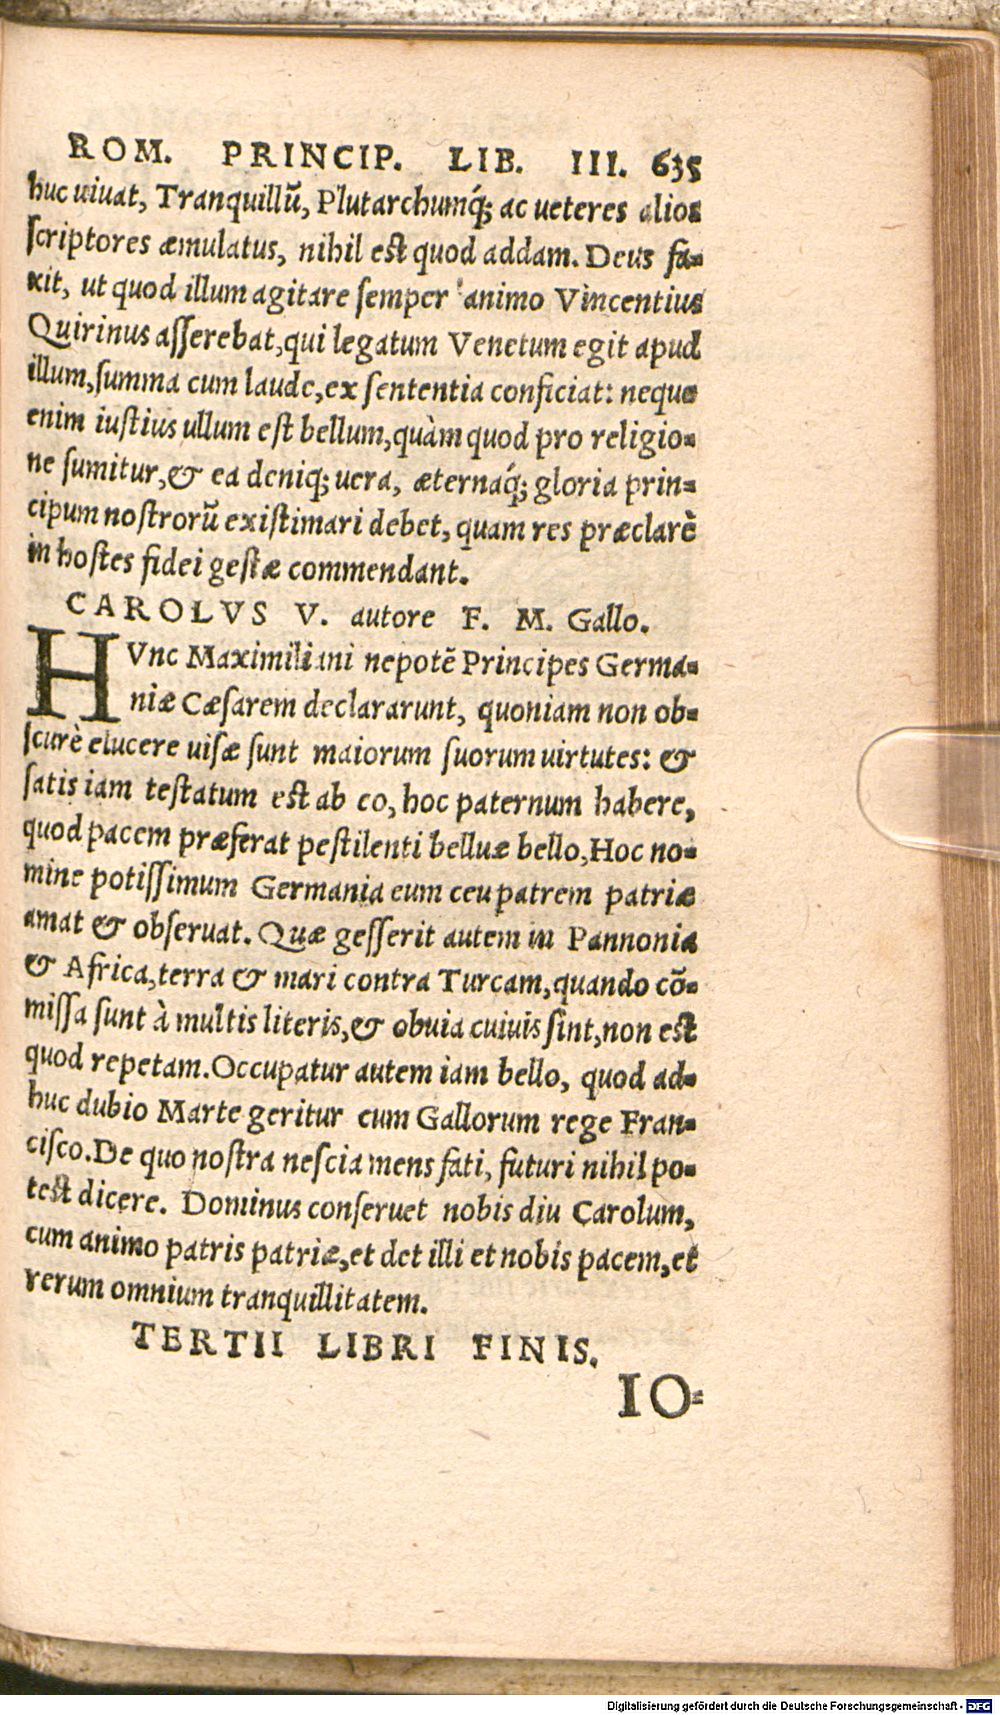 ROM. PRINCIP. LIB. III. 635
huc uiuat, Tranquillũ, Plutarchumq́; ac ueteres alios
scriptores æmulatus, nihil est quod addam. Deus fa-
xit, ut quod illum agitare semper animo Vincentius
Quirinus asserebat, qui legatum Venetum egit apud
illum, summa cum laude, ex sententia conficiat: neque
enim iustius ullum est bellum, quàm quod pro religio-
ne sumitur, & ea deniq; uera, æternaq́; gloria prin-
cipum nostrorũ existimari debet, quam res præclarè
in hostes fidei gestæ commendant.
CAROLVS V. autore F. M. Gallo.
HVnc Maximiliani nepotẽ Principes Germa-
niæ Cæsarem declararunt, quoniam non ob-
scurè elucere uisæ sunt maiorum suorum uirtutes: &
satis iam testatum est ab eo, hoc paternum habere,
quod pacem præferat pestilenti belluæ bello, Hoc no-
mine potissimum Germania eum ceu patrem patriæ
amat & obseruat. Quæ gesserit autem in Pannonia
& Africa, terra & mari contra Turcam, quando cõ-
missa sunt à multis literis, & obuia cuiuis sint, non est
quod repetam. Occupatur autem iam bello, quod ad-
huc dubio Marte geritur cum Gallorum rege Fran-
cisco. De quo nostra nescia mens fati, futuri nihil po-
test dicere. Dominus conseruet nobis diu Carolum,
cum animo patris patriæ, et det illi et nobis pacem, et
rerum omnium tranquillitatem.
TERTII LIBRI FINIS.
IO-
Digitalisierung gefördert durch die Deutsche Forschungsgemeinschaft - DFG